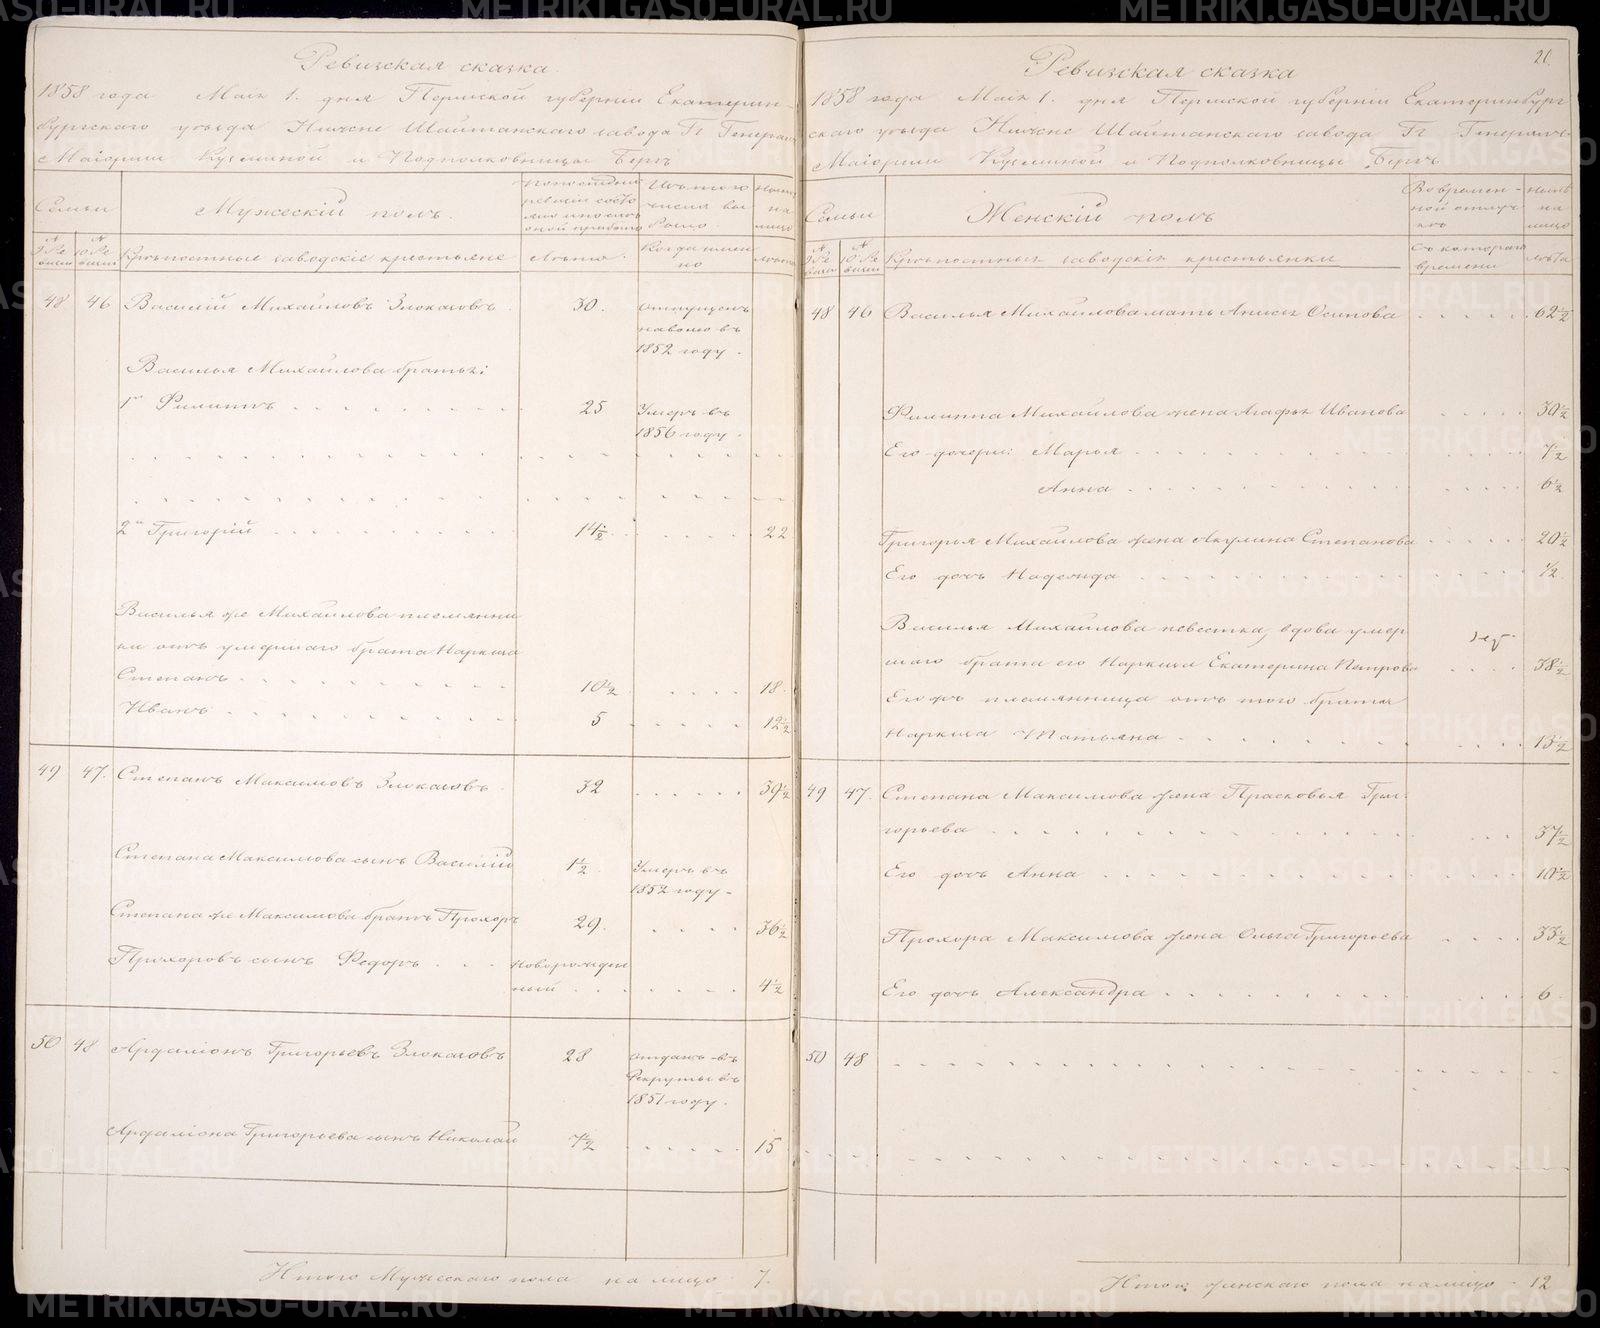 Ревизская сказка
1858 года Маія 1. дня Пермской губерніи Екатерин-
бургскаго уѣзда Нижне Шайтанскаго завода Гг Генералъ
Маіорши Кузминой и Подполковницы Бергъ
Семьи
Мужескій полъ.
Ныне на лицо
№ 9 Ре визіи
№ 10 Ре визіи
Крѣпостные заводскіе крестьяне
лѣта.
Когда имен но
лѣта
48 46 Василій Михайловъ Злоказовъ 30. Отпущенъ
на волю въ
1852 году.
Василья Михайлова братья:
1й Филиппъ 25 Умеръ въ
1856 году.
2й Григорій 14½ 22
Василья же Михайлова племянни
ки отъ умершаго брата Наркиза
Степанъ 10½ 18
Иванъ 5 12½
49 47. Степанъ Максимовъ Злоказовъ 32 39½
Степана Максимова сынъ Василій 1½ Умеръ въ
1852 году
Степана же Максимова братъ Прохоръ 29. 36½
Прохоровъ сынъ Федоръ Новорожден
ный 4½
50 48 Ардаліонъ Григорьевъ Злоказовъ 28 отданъ въ
Рекруты въ
1851 году.
Ардаліона Григорьева сынъ Николай 7½ 15
Итого Мужескаго пола на лицо 7.
20
Ревизская сказка
1858 года Маія 1. дня Пермской губерніи Екатеринбург
скаго уѣзда Нижне Шайтанскаго завода Гг Генералъ-
Маіорши Кузминой и Подполковницы Бергъ
Семьи
Женскій полъ
Во времен-
ной отлуч-
кѣ
Нынѣ
на
лицо
№ 9 Ре визіи
№ 10 Ре визіи
Крѣпостныя заводскія крестьянки
Съ котораго
времени
лѣта
48 46 Василья Михайлова мать Анисья Осипова 62½
Филиппа Михайлова жена Агафья Иванова 30½
Его дочери: Марья 7½
Анна 6½
Григорья Михайлова жена Акулина Степанова 20½
Его дочь Надежда ½
Василья Михайлова невестка, вдова умер
шаго брата его Наркиза Екатерина Петрова 38½
Его жъ племянница отъ того брата
Наркиза Татьяна 13½
49 47. Степана Максимова жена Прасковья Гри-
горьева 37½
Его дочь Анна 10½
Прохора Максимова жена Ольга Григорьева 33½
Его дочь Александра 6
50 48
Итого женскаго пола на лицо 12
METRIKI.GASO-URAL.RU